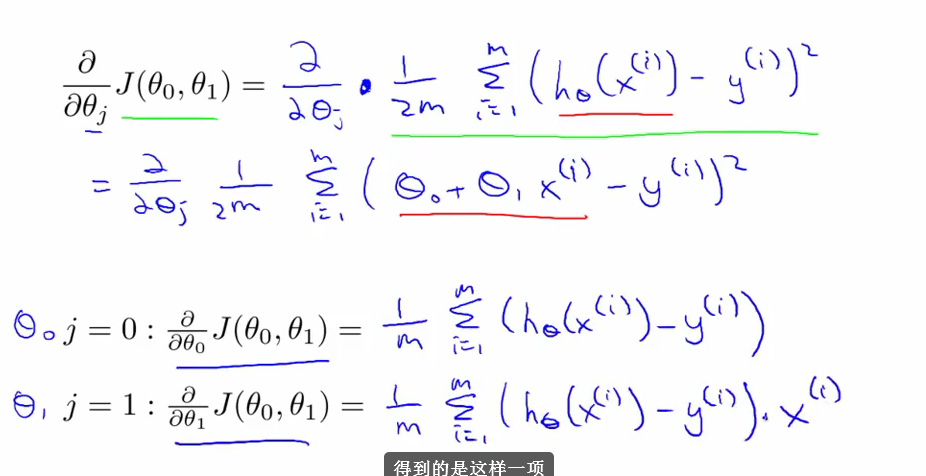 ∂/∂θⱼ J(θ₀, θ₁) = ∂/∂θⱼ · 1/2m Σᵢ₌₁ᵐ (hθ(x⁽ⁱ⁾) - y⁽ⁱ⁾)²
= ∂/∂θⱼ 1/2m Σᵢ₌₁ᵐ (θ₀ + θ₁ x⁽ⁱ⁾ - y⁽ⁱ⁾)²
θ₀ j = 0 : ∂/∂θ₀ J(θ₀, θ₁) = 1/m Σᵢ₌₁ᵐ (hθ(x⁽ⁱ⁾) - y⁽ⁱ⁾)
θ₁ j = 1 : ∂/∂θ₁ J(θ₀, θ₁) = 1/m Σᵢ₌₁ᵐ (hθ(x⁽ⁱ⁾) - y⁽ⁱ⁾) · x⁽ⁱ⁾
得到的是这样一项